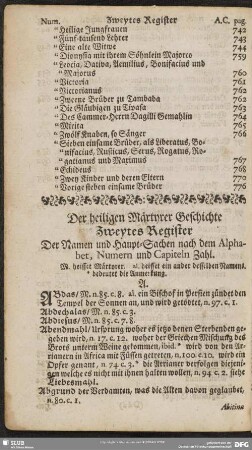 Num. Zweytes Register A.C. pag.
" Heilige Jungfrauen 742
" Fünf tausend Lehrer 743
" Eine alte Witwe 744
" Dionysia mit ihrem Söhnlein Majorco 759
" Leocia, Dativa, Aemilius, Bonifacius und
" Majorus 760
" Victoria 761
" Victorianus 762
" Zweene Brüder zu Tambada 762
" Die Gläubigen zu Tivasa 763
" Des Cammer-Herrn Dagilä Gemahlin 764
" Mirita 765
" Zwölf Knaben, so Sänger 766
" Sieben einsame Brüder, als Liberatus, Bo-
nifacius, Rusticus, Serus, Rogatus, Ro-
gatianus und Maximus 767
" Echideus 768
" Zwey Kinder und deren Eltern 770
" Vorige sieben einsame Brüder 776
Der heiligen Märtyrer Geschichte
Zweytes Register
Der Namen und Haupt-Sachen nach dem Alpha-
bet, Numern und Capiteln Zahl.
M. heisset Märtyrer. al. heisset ein ander desselben Namens.
* bedeutet die Anmerkung.
A.
ABdas/ M. n. 85. c. 8. al. ein Bischof in Persien zündet den
Tempel der Sonnen an, und wird getödtet, n. 97. c. 1.
Abdechalas/ M. n. 85. c. 3.
Abdiesus/ M. n. 85. c. 7. 8.
Abendmahl/ Ursprung woher es jetzo denen Sterbenden ge-
geben wird, n. 17. c. 12. woher der Griechen Mischung des
Brots unterm Weine gekommen, ibid. * wird von den Ar-
rianern in Africa mit Füssen getreten, n. 100. c. 10. wird ein
Opfer genant, n. 74. c. 3. * die Arrianer verfolgen diejeni-
gen welche es nicht mit ihnen halten wollen, n. 94. c. 2. siehe
Liebesmahl.
Abgrund der Verdamten, was die Alten davon geglaubet,
n. 80. c. 1.
SLUB